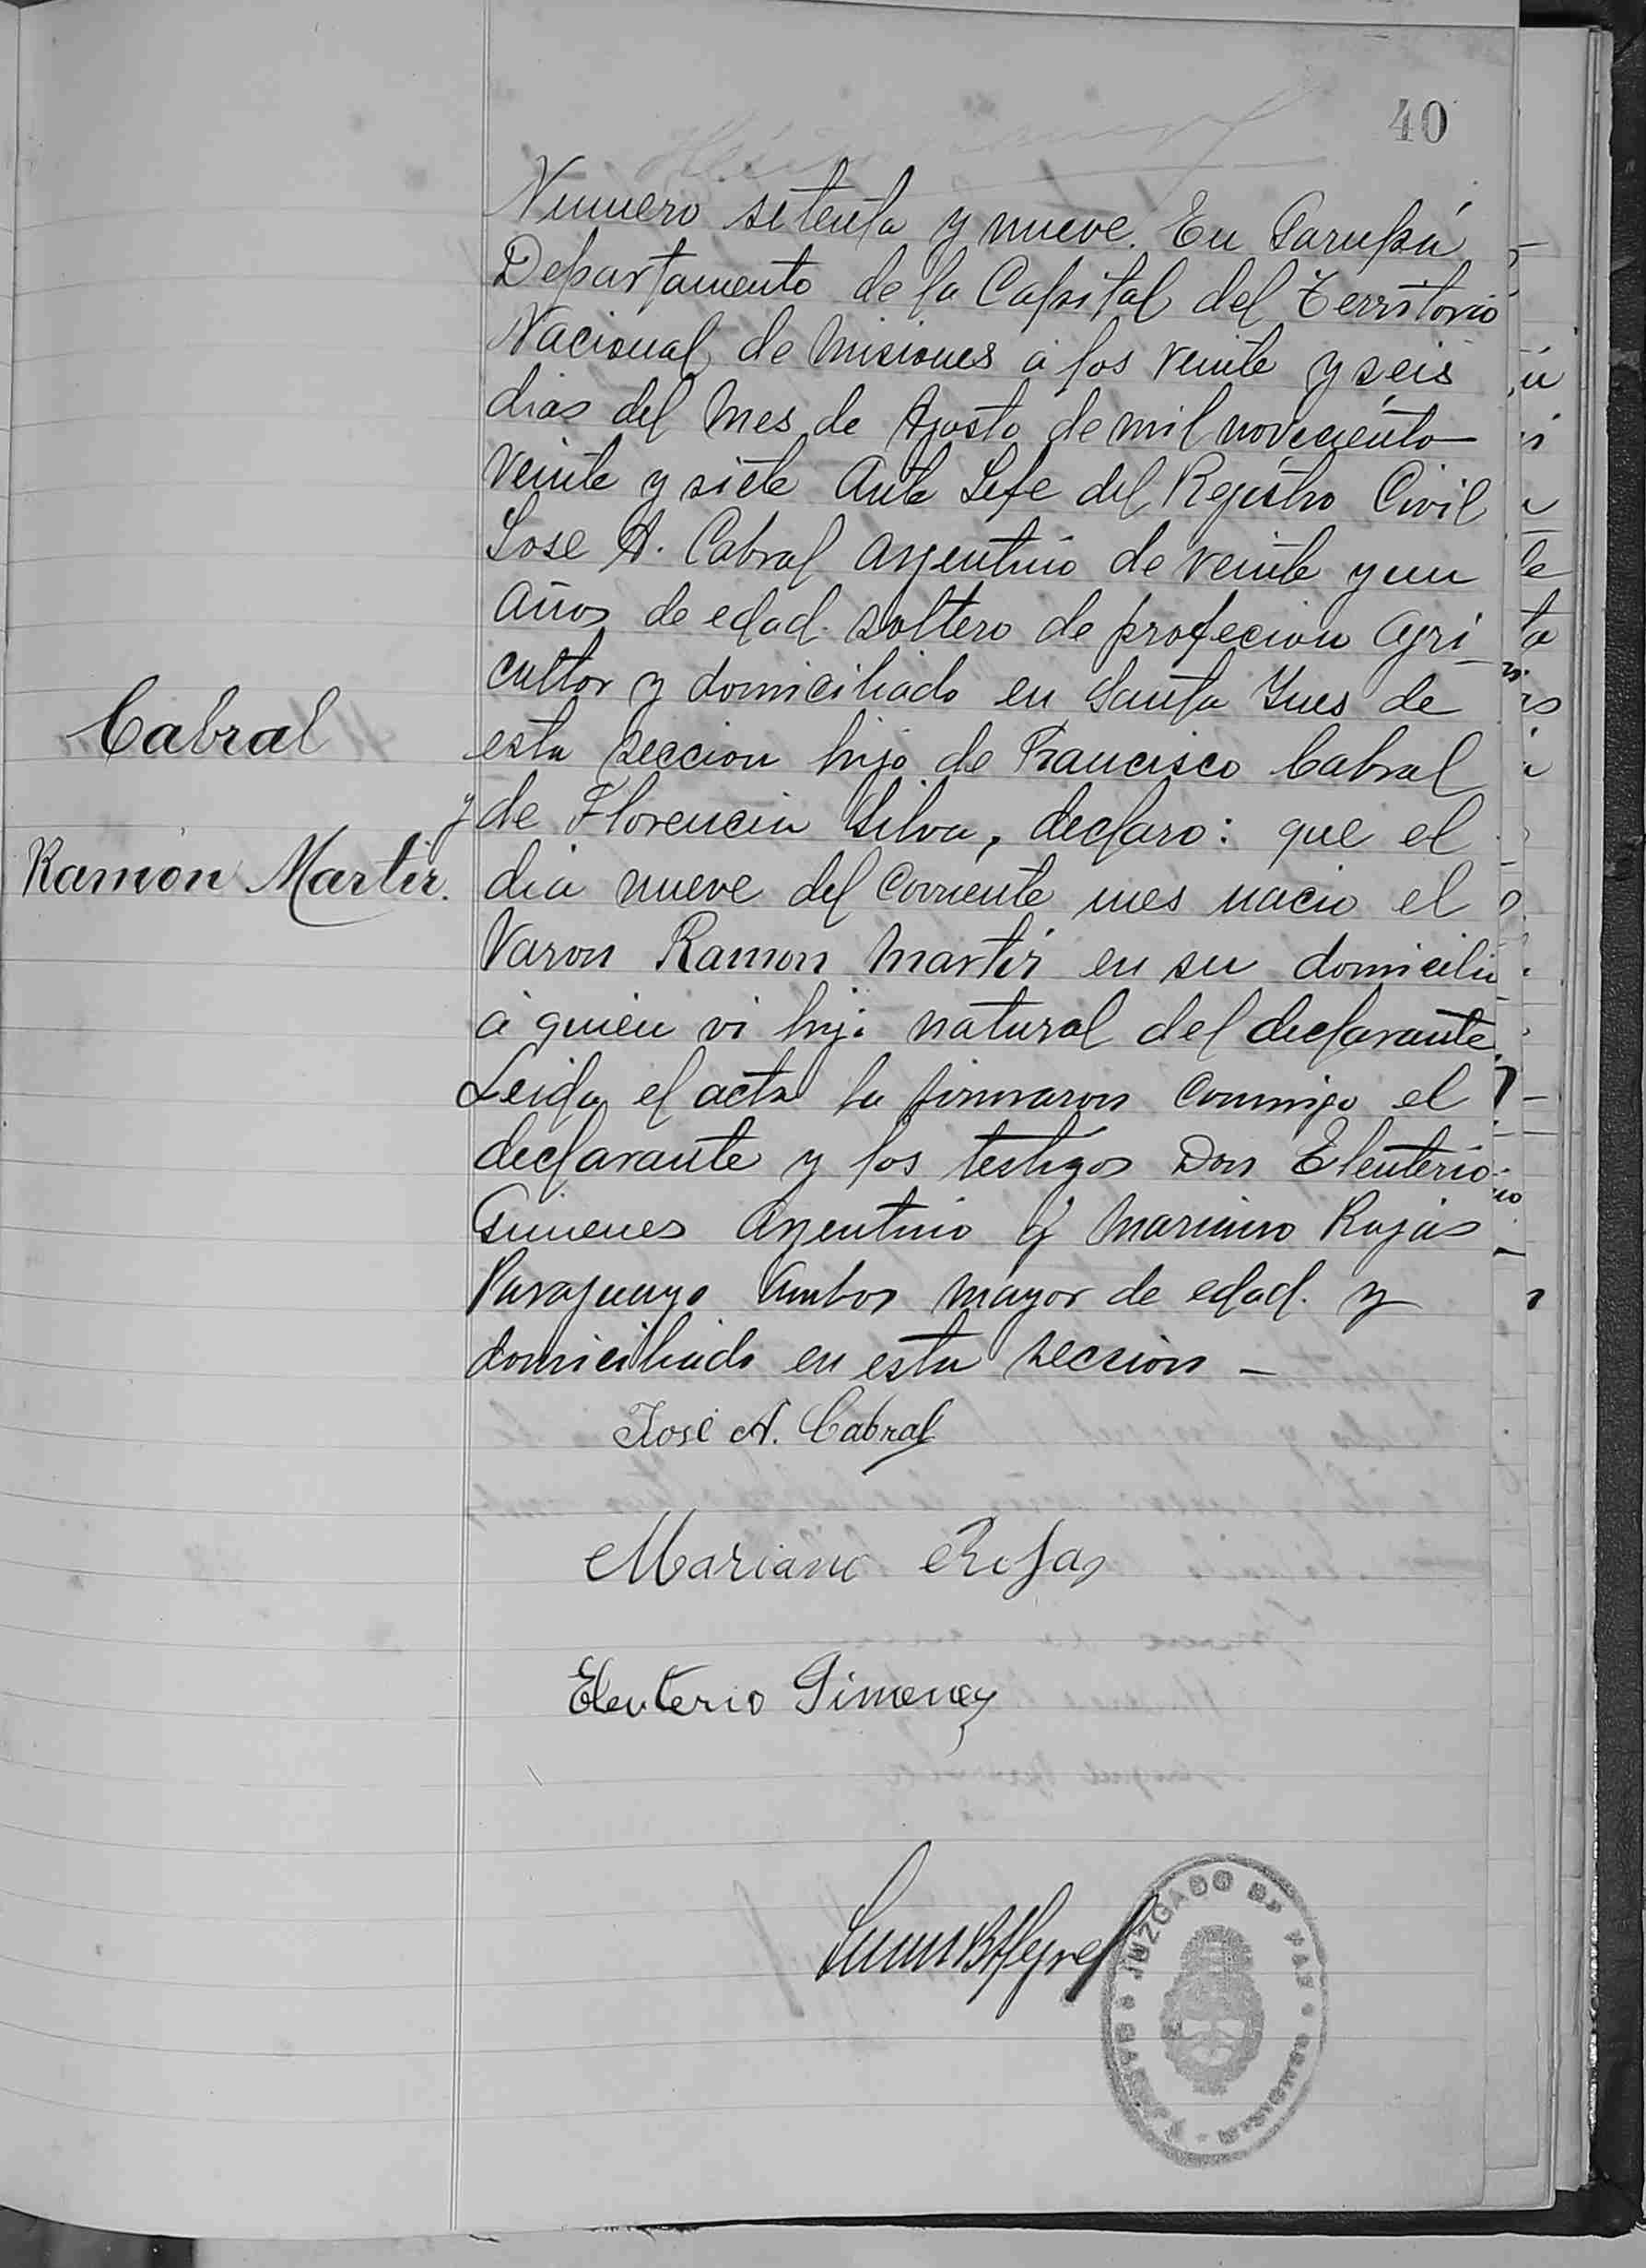 40
Numero setenta y nueve. En Garupá
Departamento de la Capital del Territorio
Nacional de Misiones á los veinte y seis
dias del mes de Agosto de mil noveciento
veinte y siete Ante Jefe del Registro Civil
Jose A. Cabral Argentino de veinte y un
Años de edad. soltero de profecion Agri
cultor y domiciliado en Santa Ynes de
Cabral
esta seccion hijo de Francisco Cabral
y de Florencia Silva, declaro: que el
Ramón Martir.
dia nueve del corriente mes nacio el
Varon Ramon Martir en su domicilio
á quien vi hijo natural del declarante.
Leida el acta la firmaron conmigo el
declarante y los testigos Don Eleuterio
Gimenes Argentino y Mariano Rojas
Paraguayo Ambos mayor de edad. y
domiciliado en esta seccion –
José A. Cabral
Mariano Rojas
Eleuterio Gimenez
JUZGADO DE PAZ